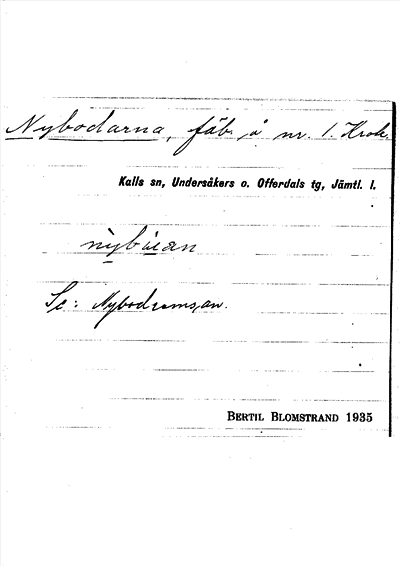 Nybodarna, fäb. å nr. 1. Krok.
Kalls sn, Undersåkers o. Offerdals tg, Jämtl. l.
Se: Nybodromsan.
BERTIL BLOMSTRAND 1935